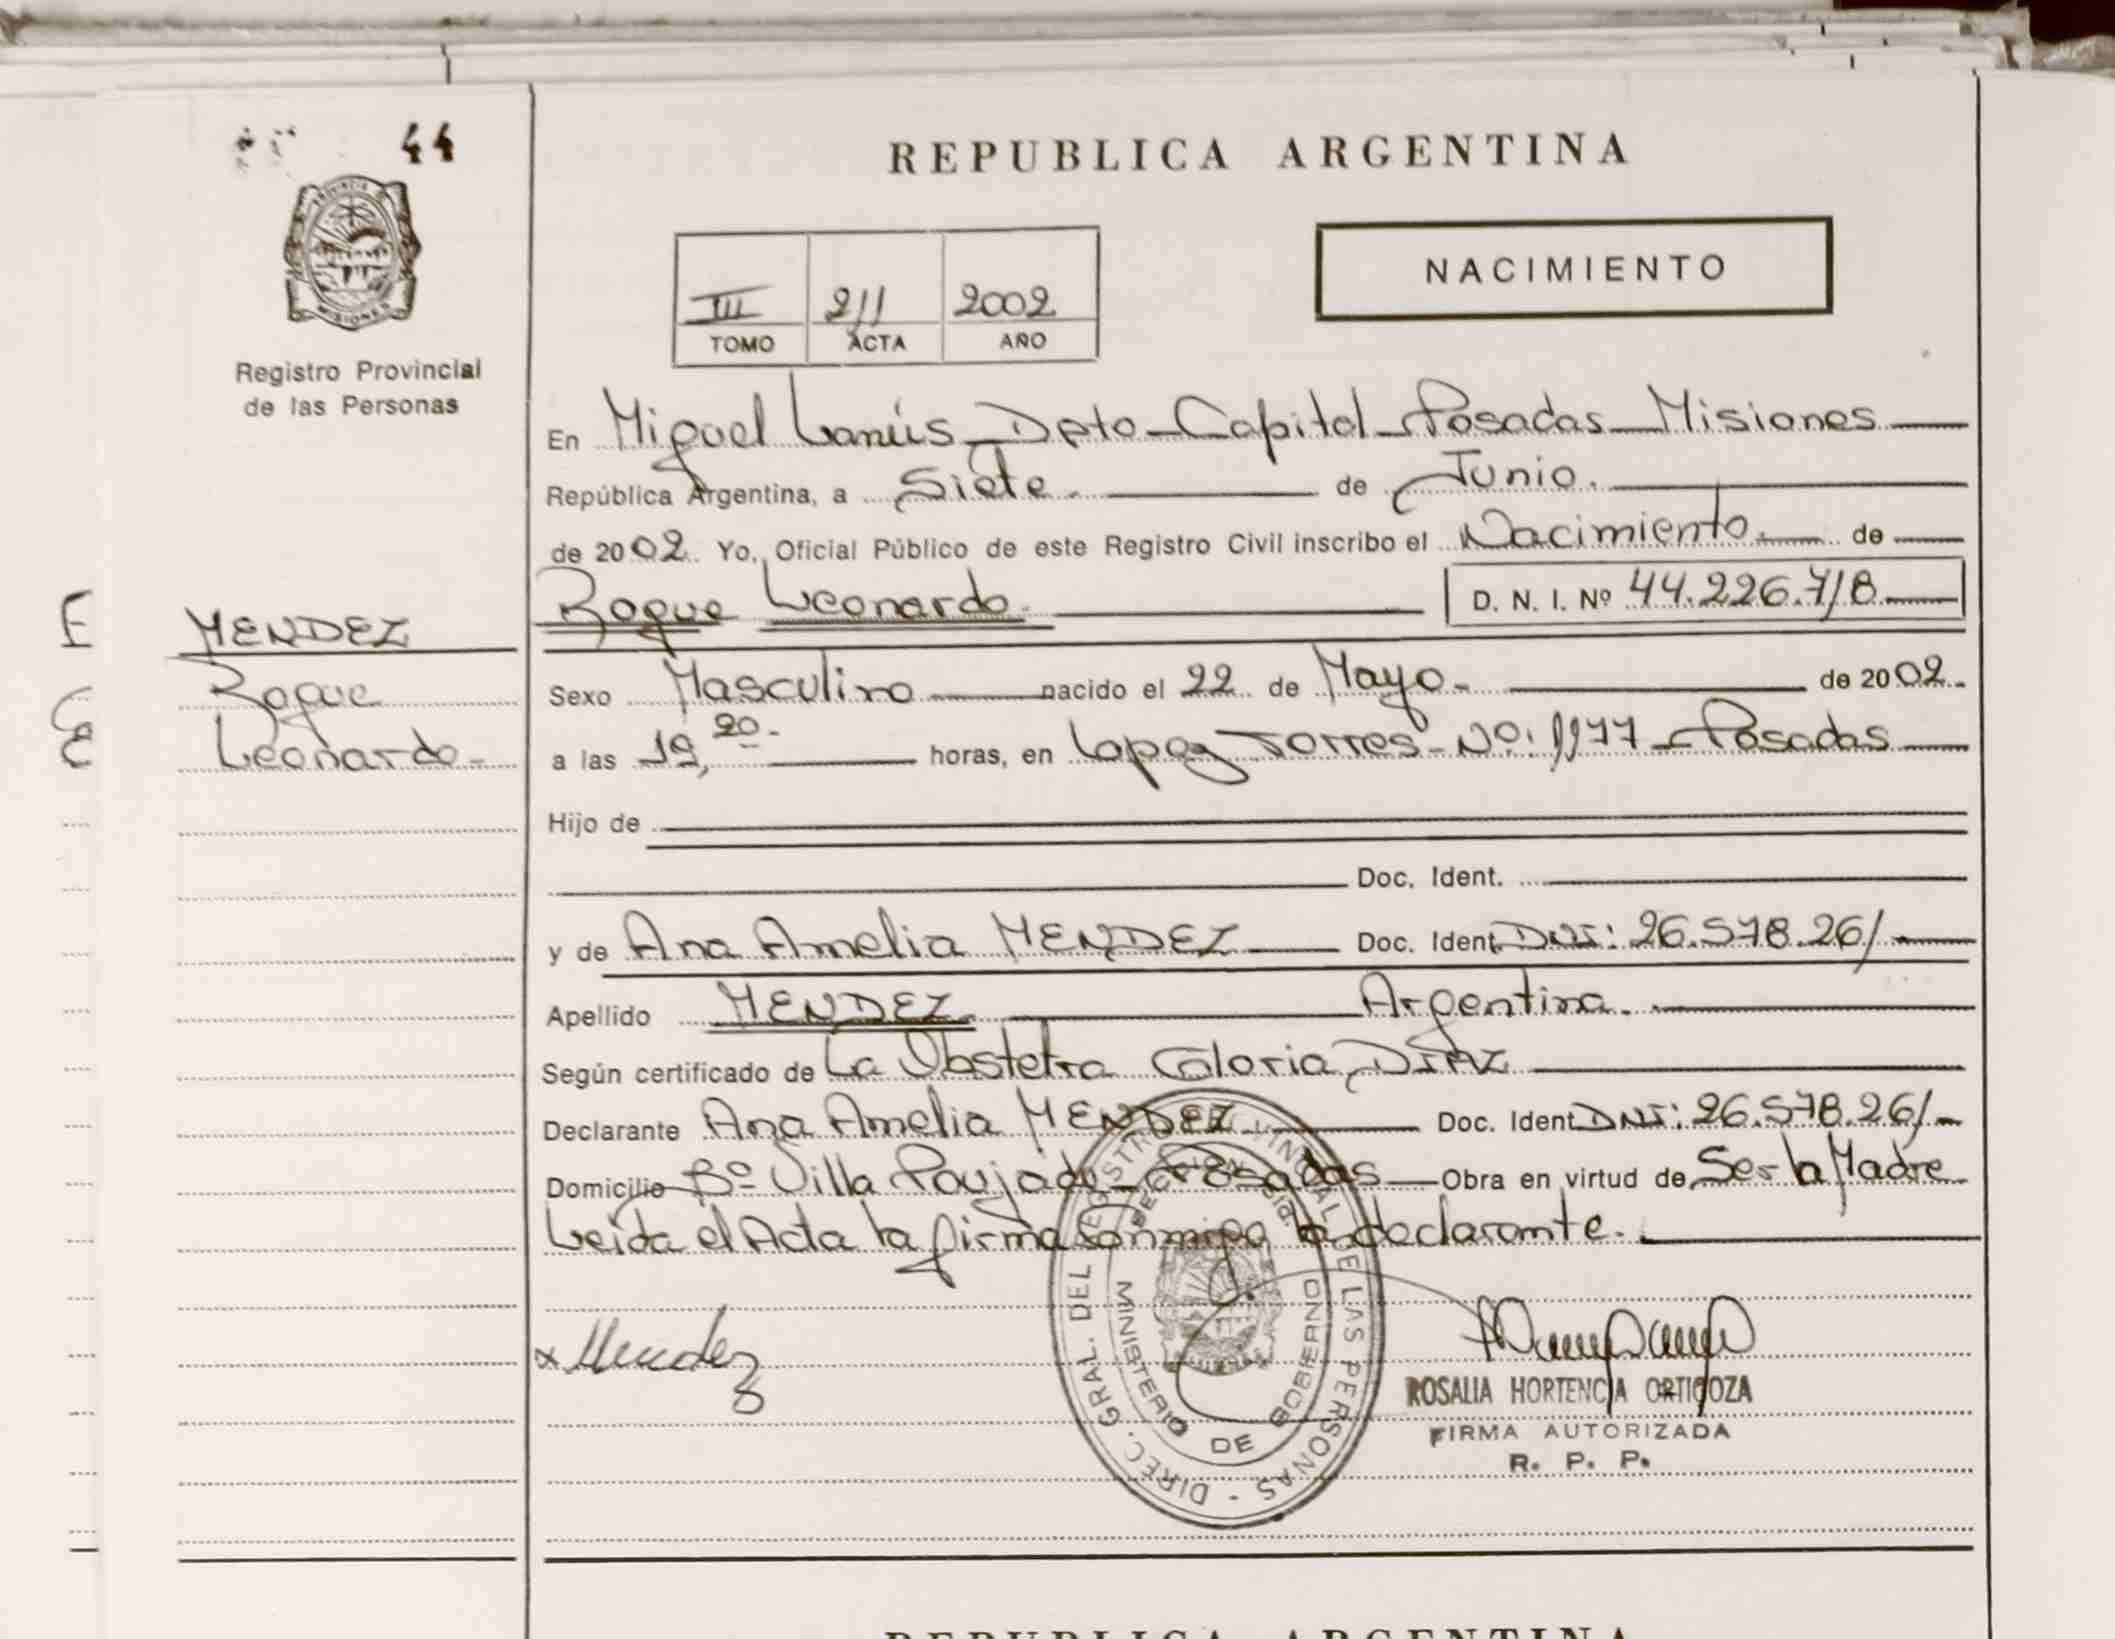 44
PROVINCIA DE
MISIONES
Registro Provincial
de las Personas
MENDEZ
Roque
Leonardo.-
REPUBLICA ARGENTINA
III 211 2002
TOMO ACTA AÑO
NACIMIENTO
En Miguel Lanús - Dpto - Capital - Posadas - Misiones
República Argentina, a Siete. de Junio.
de 2002. Yo, Oficial Público de este Registro Civil inscribo el Nacimiento. de
Roque Leonardo. D. N. I. Nº 44.226.718.
Sexo Masculino nacido el 22 de Mayo.- de 2002.-
a las 19,20.- horas, en Lopez Torres - Nº: 1177 - Posadas
Hijo de
Doc. Ident.
y de Ana Amelia MENDEZ Doc. Ident. DNI: 26.578.261.-
Apellido MENDEZ. Argentina.
Según certificado de La Obstetra Gloria DIAZ
Declarante Ana Amelia MENDEZ. Doc. Ident. DNI: 26.578.261.-
Domicilio Bº Villa Poujade - Posadas Obra en virtud de Ser la Madre
Leida el Acta la firma conmigo la declarante.
x Mendez
DIREC. GRAL. DEL REGISTRO PROVINCIAL DE LAS PERSONAS -
MINISTERIO DE GOBIERNO
ROSALIA HORTENCIA ORTIGOZA
FIRMA AUTORIZADA
R. P. P.
REPUBLICA ARGENTINA